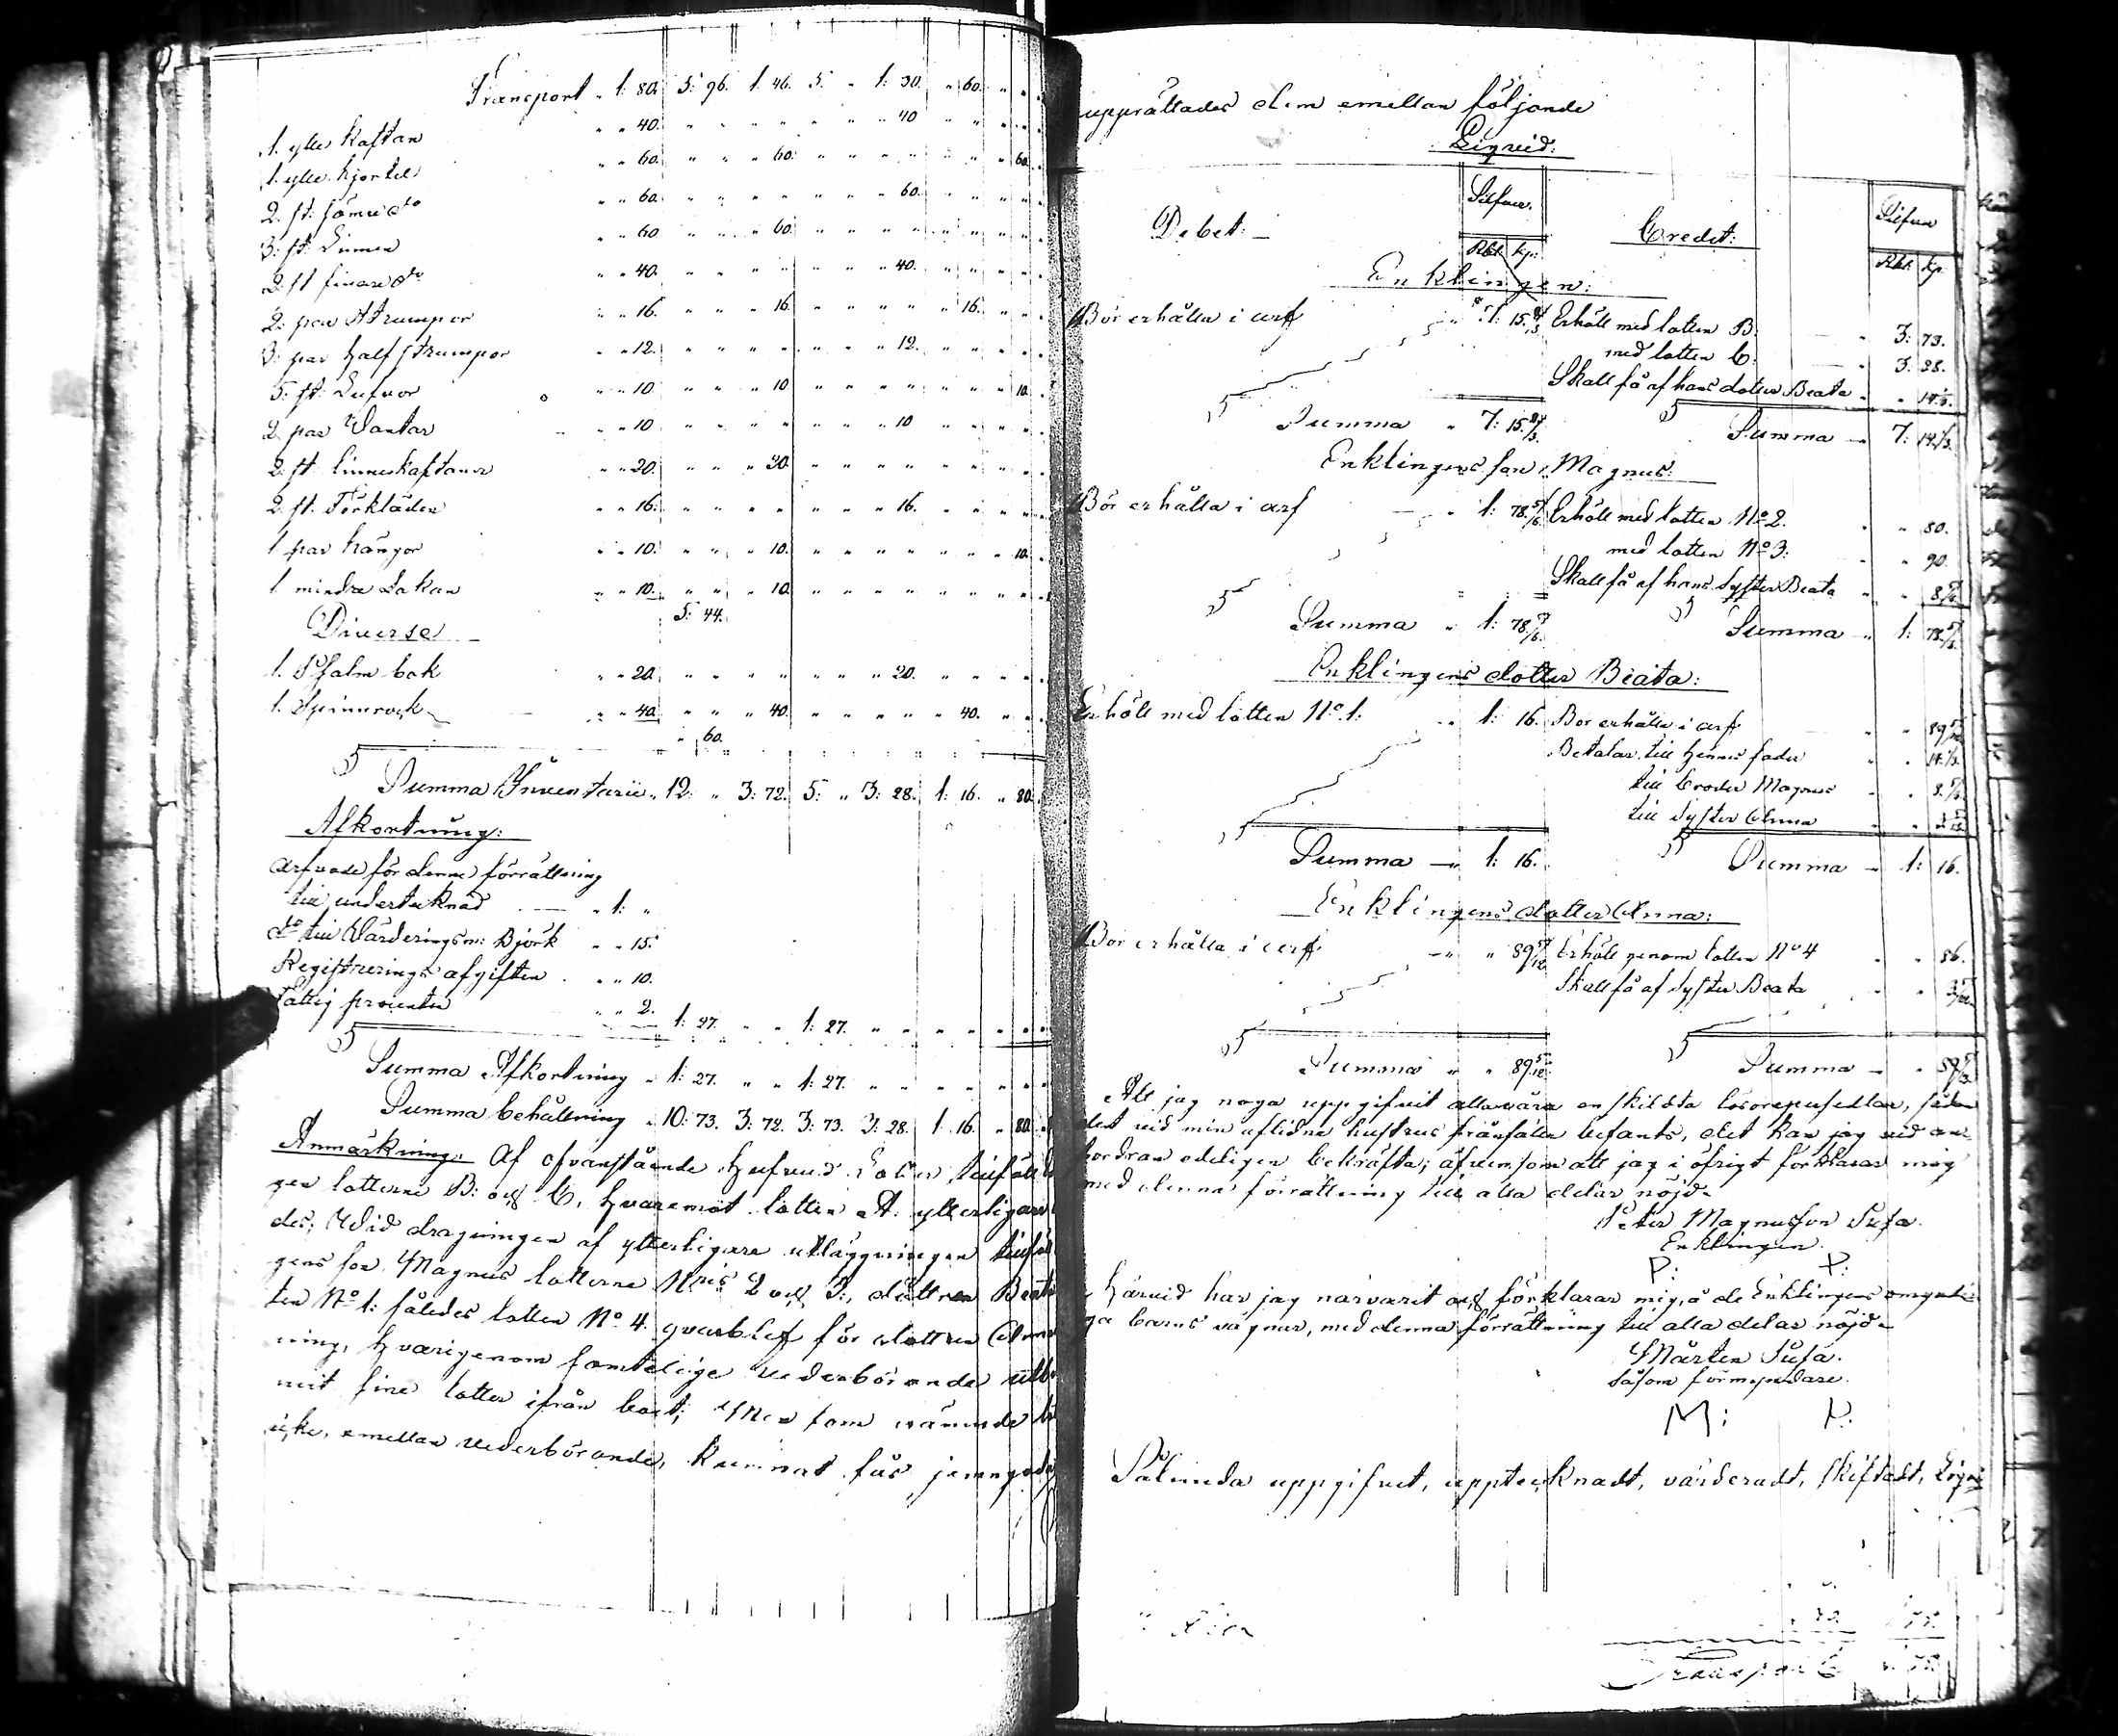 Transport " 1: 80. 5: 96. 1: 46. 5: " 1: 30. " 60. " "
1. ylle Kaftan " " 40. " " " " " " " 40 " " " "
1. ylle Kjortel " " 60. " " " 60. " " " " " " " 60.
2. st: sämre do " " 60. " " " " " " " 60. " " " "
3: st: Linnen " " 60 " " " 60. " " " " " " " "
2 st finare do " " 40. " " " " " " " 40. " " " "
2: par Strumpor " " 16. " " " 16. " " " " " 16. " "
3: par Halfstrumpor " " 12. " " " " " " " 12. " " " "
5: st: Lufvor " " 10. " " " 10 " " " " " " " 10.
2. par Vantar " " 10 " " " " " " " 10 " " " "
2: st linneskaftanor " " 20. " " " 20. " " " " " " " "
2. st. Förkläden " " 16. " " " " " " " 16. " " " "
1 par hängor " " 10. " " " 10. " " " " " " " 10.
1 mindre Lakan " " 10. " " " 10. " " " " " " " "
5: 44.
Diverse
1. Psalm bok " " 20. " " " " " " " 20. " " " "
1. Spinnrock " " 40. " " " 40. " " " " " 40. " "
" 60.
Summa Inventarii " 12: " 3: 72. 5: " 3: 28. 1: 16. " 80.
Afkortning:
Arfvode för denna förrättning
till undertecknad " 1: "
do till Värderingsm: Björk " " 15.
Registrerings afgiften " " 10.
Fattig procenten " " 2. 1: 27. " " 1: 27. " " " " " "
Summa Afkortning " 1: 27. " " 1: 27. " " " " " "
Summa behållning " 10: 73. 3: 72. 3: 73. 3: 28. 1: 16. " 80.
Anmärkning: Af ofvanstående Hufvud Lotter tillföll
gen lotterne B: och C, hvaremot lotten A. ytterligare
des; Wid dragningen af ytterligare utläggningen tillföll
gens son Magnus lotterne Nris 2 och 3:, dottren Beata
ten No 1: således lotten No 4. qvarblef för dottren Anna
ning, hvarigenom samtelige vederbörande utbe
mit sine lotter ifrån boet; Men som nämnde lo
icke, emellan vederbörande, kunnat fås jemngoda
upprättades dem emellan följande
Liqvid:
Debet: Silfver. Credit: Silfver
Rbl. kp. Rbl. kp.
Enklingen:
Bör erhålla i arf " 7: 15. 1/3 Erhöll med lotten B. " 3: 73.
med lotten C. " 3: 28.
Skall få af hans dotter Beata " " 14 1/3.
Summa " 7: 15. 1/3. Summa " 7: 14 1/3.
Enklingens son, Magnus:
Bör erhålla i arf " 1: 78 5/6 Erhöll med lotten No 2. " " 80.
med lotten No 3: " " 90.
Skall få af hans Syster Beata " " 8 5/6.
Summa " 1: 78 5/6. Summa " 1: 78 5/6.
Enklingens dotter Beata:
Erhöll med lotten No 1: " 1: 16. Bör erhålla i arf " " 89 5/12
Betalar till hennes fader " " 14 1/3.
till broder Magnus " " 8 5/6.
till Syster Anna " " 3 5/12
Summa " 1: 16. Summa " 1: 16.
Enklingens dotter Anna:
Bör erhålla i arf " " 89 5/12 Erhöll genom lotten No 4 " " 86.
Skall få af Syster Beata " " 3 5/12.
Summa " " 89 5/12. Summa " " 89 5/12
Att jag noga uppgifvit alla våra enskilda lösörepersedlar, sådan
det vid min aflidna hustrus frånfälle befants, det kan jag vid an-
fordran edeligen bekräfta; äfvensom att jag i öfrigt förklarar mig
med denna förrättning till alla delar nöjd.
Peter Magnusson Susa.
Enklingen.
P: P:
Härvid har jag närvarit och förklarar mig, å de Enklingens omyndi-
ga barns vägnar, med denna förrättning till alla delar nöjd.
Mårten Susa.
såsom förmyndare.
M: P:
Sålunda uppgifvet, upptecknadt, värderadt, skiftadt, Liqvi
Transport